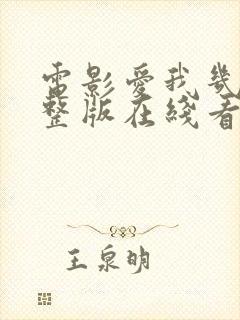 電影愛我幾
整版在綫看
王泉明